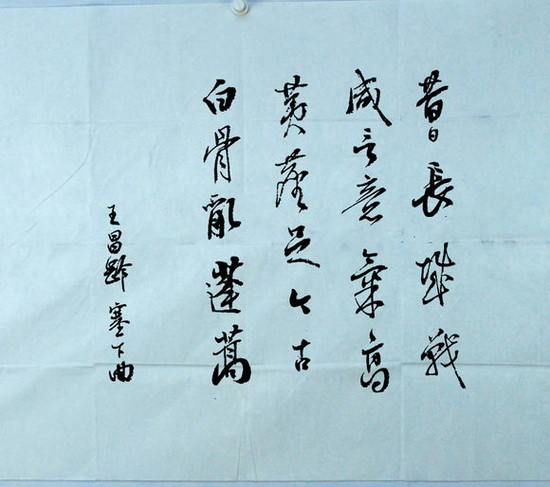 昔長城戰
咸言意氣高
黄塵足今古
白骨亂蓬蒿
王昌齡塞下曲